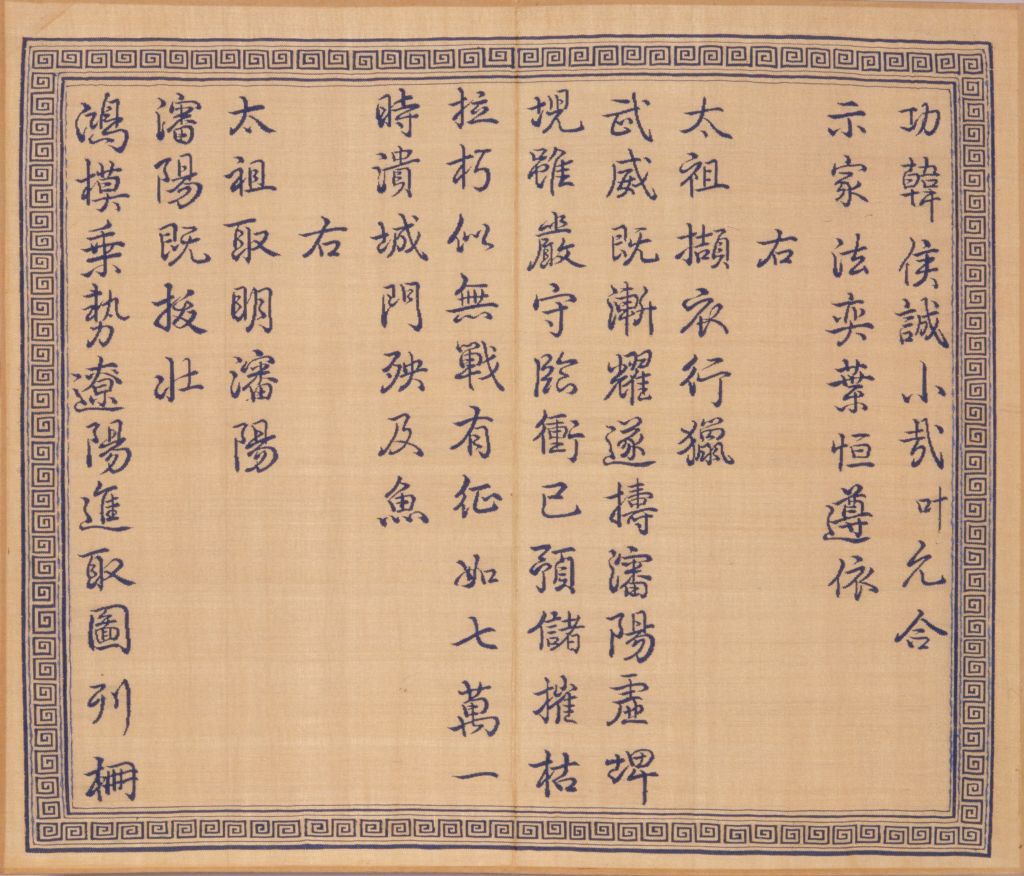 功韓侯誠小哉叶允合
示家法奕葉恒遵依
右
太祖擷衣行獵
武威既漸耀遂擣瀋陽虛埤
堄雖嚴守陰衝已預儲摧枯
拉朽似無戰有征如七萬一
時潰城門殃及魚
右
太祖取明瀋陽
瀋陽既拔壯
鴻模乗勢遼陽進取圖列柵